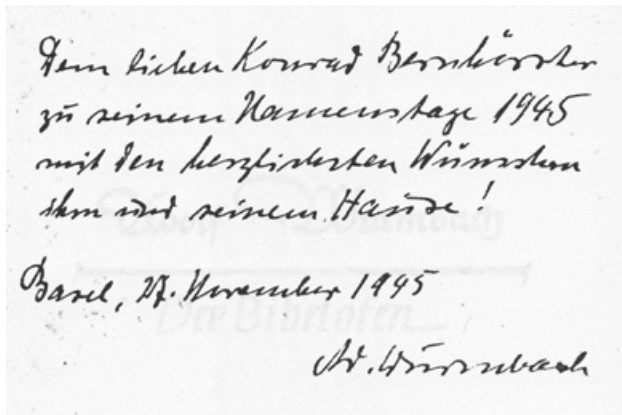 Dem lieben Konrad Bernhörster
zu seinem Namenstage 1945
mit den herzlichsten Wünschen
ihm und seinem Hause!
Basel, 27. November 1945
Ad. Wurmbach
Adolf Wurmbach
Der Bibelofen